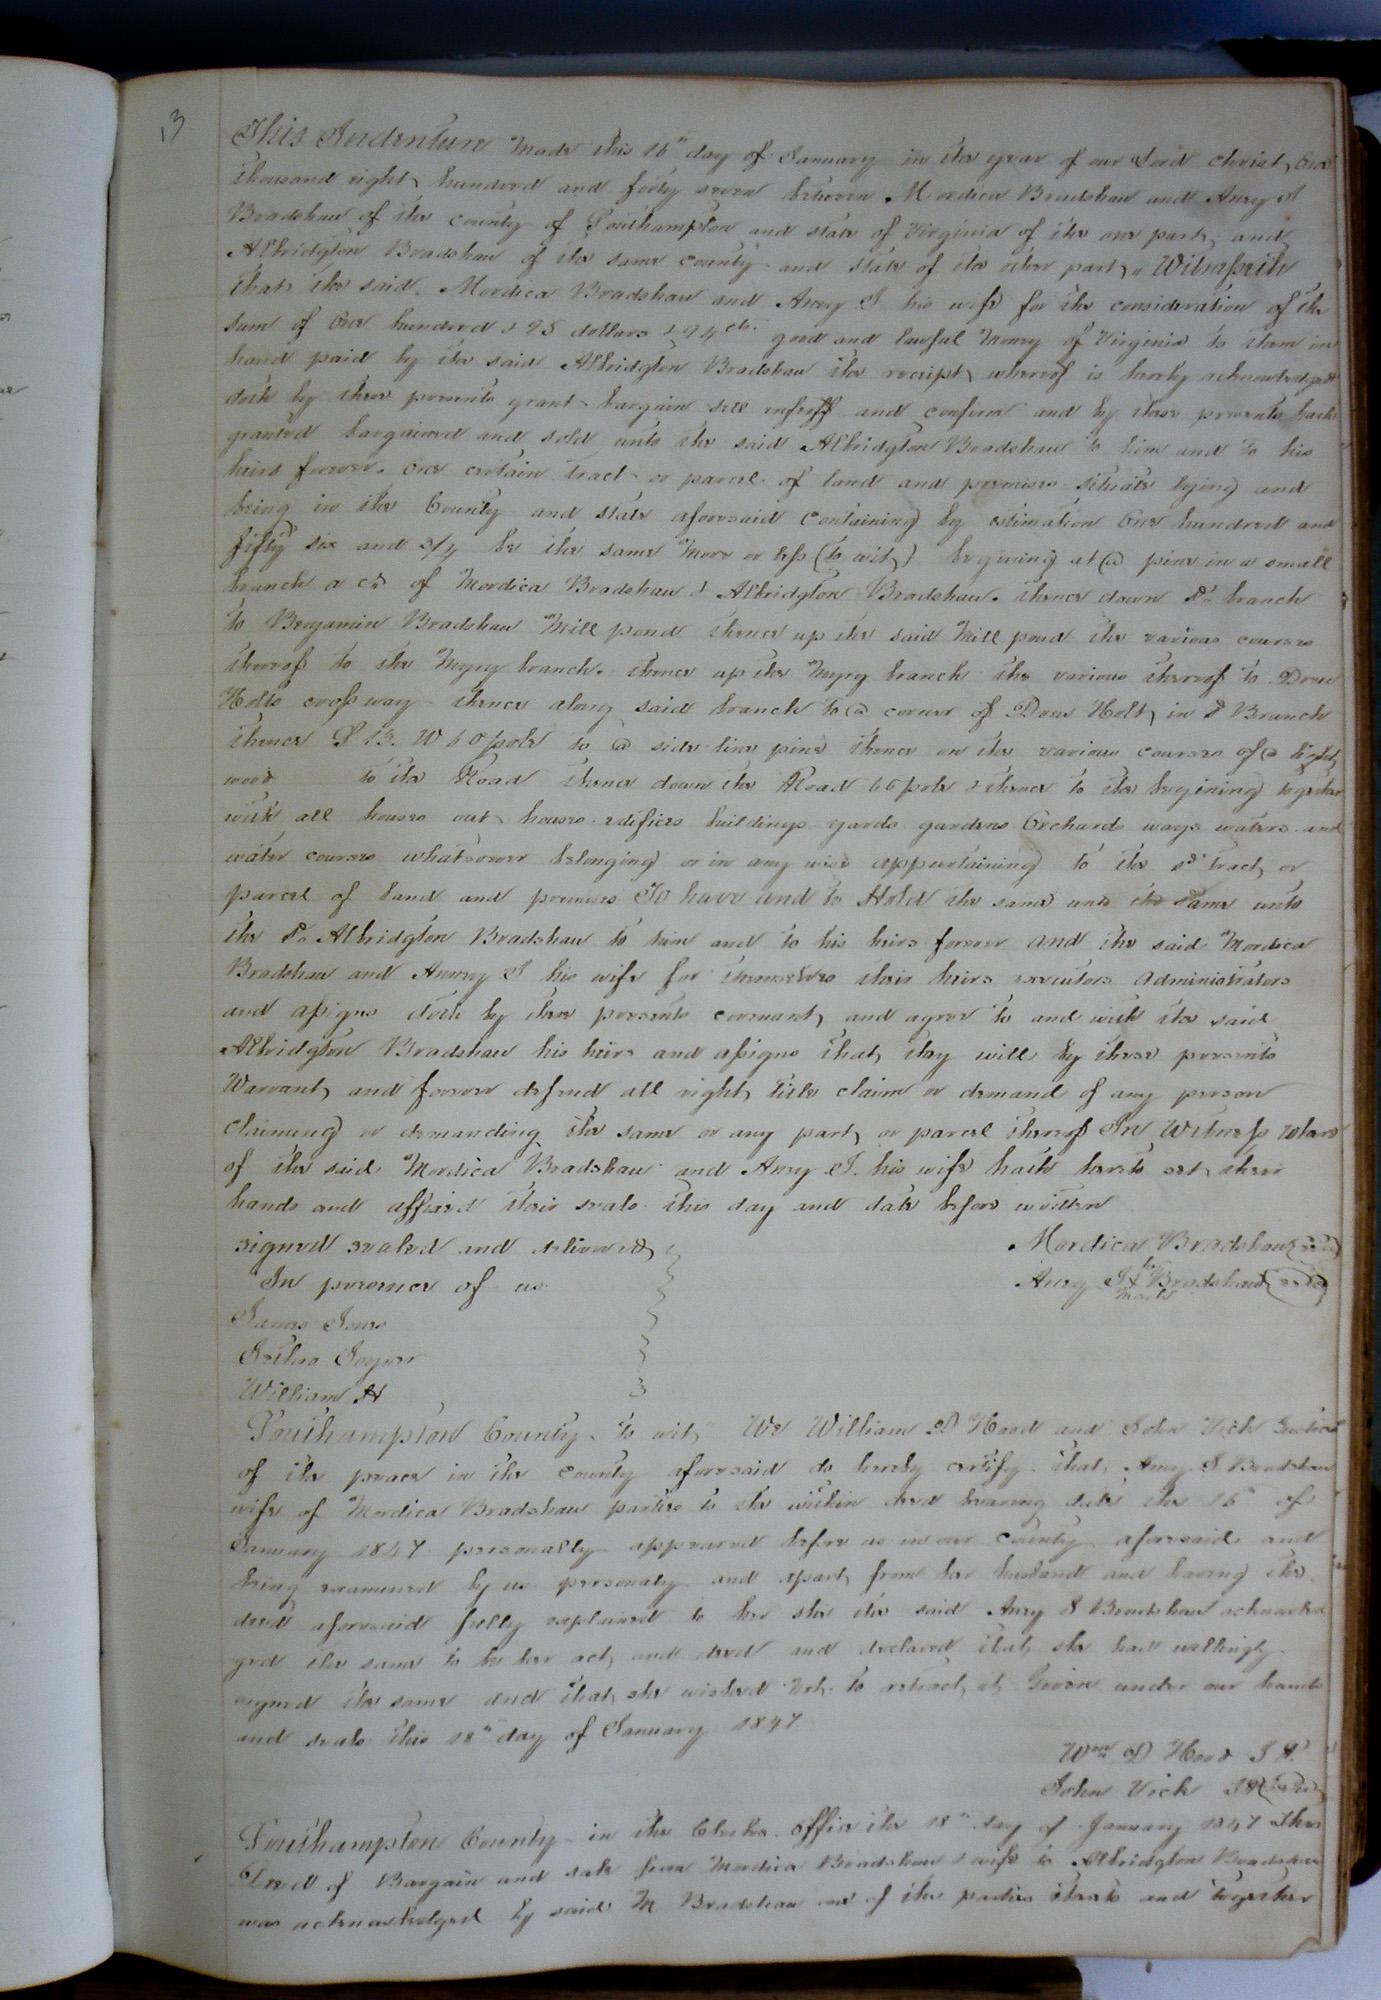 13
This Indenture Made this 16th day of January in the year of our Lord Christ, One
thousand eight hundred and forty seven between Mordica Bradshaw and Anry S
Bradshaw of the county of Southampton and state of Virginia of the one part, and
Albridgton Bradshaw of the same county and state of the other part, Witnesseth
that the said Mordica Bradshaw and Anry S his wife for the consideration of the
sum of One hundred & 95 dollars & 94 cts. good and lawful Money of Virginia to them in
hand paid by the said Albridgton Bradshaw the receipt whereof is hereby acknowledged
doth by these presents grant bargain sell enfeoff and confirm and by these presents hath
granted bargained and sold unto the said Albridgton Bradshaw to him and to his
heirs forever. One certain tract or parcel of land and premises situate lying and
being in the County and state aforesaid Containing by estimation One hundred and
fifty six and 3/4 be the same More or less (to wit) begining at @ pine in a small
branch a cr of Mordica Bradshaw & Albridgton Bradshaw. thence down sd branch
to Benjamin Bradshaw Mill pond thence up the said Mill pond the various courses
thereof to the Myry branch. thence up the Myry branch the various thereof to Drew
Holts crossway thence along said branch to @ corner of Drew Holt, in sd Branch
thence S 13. W 60 pole to @ side line pine thence on the various courses of @ light
wood to the Road thence down the Road 66 pole & thence to the begining together
with all houses out houses edifices buildings yards gardens Orchards ways waters and
water courses whatsoever belonging or in any wise appurtaining to the sd tract, or
parcel of land and premises To have and to Hold the same and the same unto
the sd Albridgton Bradshaw to him and to his heirs forever and the said Mordica
Bradshaw and Anry S his wife for themselves their heirs executors administrators
and assigns doth by these presents covenant, and agree to and with the said
Albridgton Bradshaw his heirs and assigns that they will by these presents
Warrant, and forever defend all right, title claim or demand of any person
claiming or demanding the same or any part, or parcel thereof In Witness where
of the said Mordica Bradshaw and Anry S. his wife hath hereto set their
hands and affixed their seals this day and date before written
signed sealed and delivered Mordica Bradshaw (seal)
In presence of us Anry S her X Bradshaw (seal)
mark
James Jones
Joyner
William H
Southampton County to wit, We William D Hood and John Vick Justices
of the peace in the county aforesaid do hereby certify that Anry S Bradshaw
wife of Mordica Bradshaw parties to the within deed bearing date the 16th of
January 1847 personally appeared before us in our county aforesaid and
being examined by us personaly and apart, from her husband and having the
deed aforesaid fully explained to her she the said Anry S Bradshaw acknowled
ged the same to be her act, and deed and declared that, she had willingly
signed the same and that, she wished not to retract, it Given under our hands
and seals this 18th day of January 1847
Wm D Hood J P.
John Vick JP (seal)
Southampton County in the Clerks office the 18th day of January 1847 This
Deed of Bargain and sale from Mordica Bradshaw & wife to Albridgton Bradshaw
was acknowledged by said M Bradshaw one of the parties thereto and together